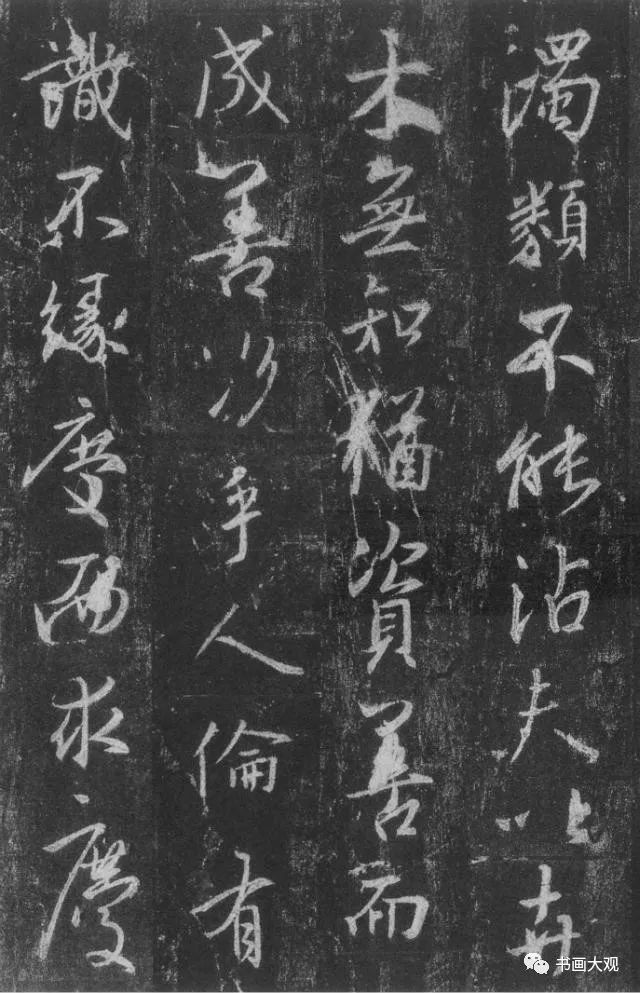 濁類不能沾夫以卉
木無知猶資善而
成善況乎人倫有
識不緣慶而求慶
书画大观